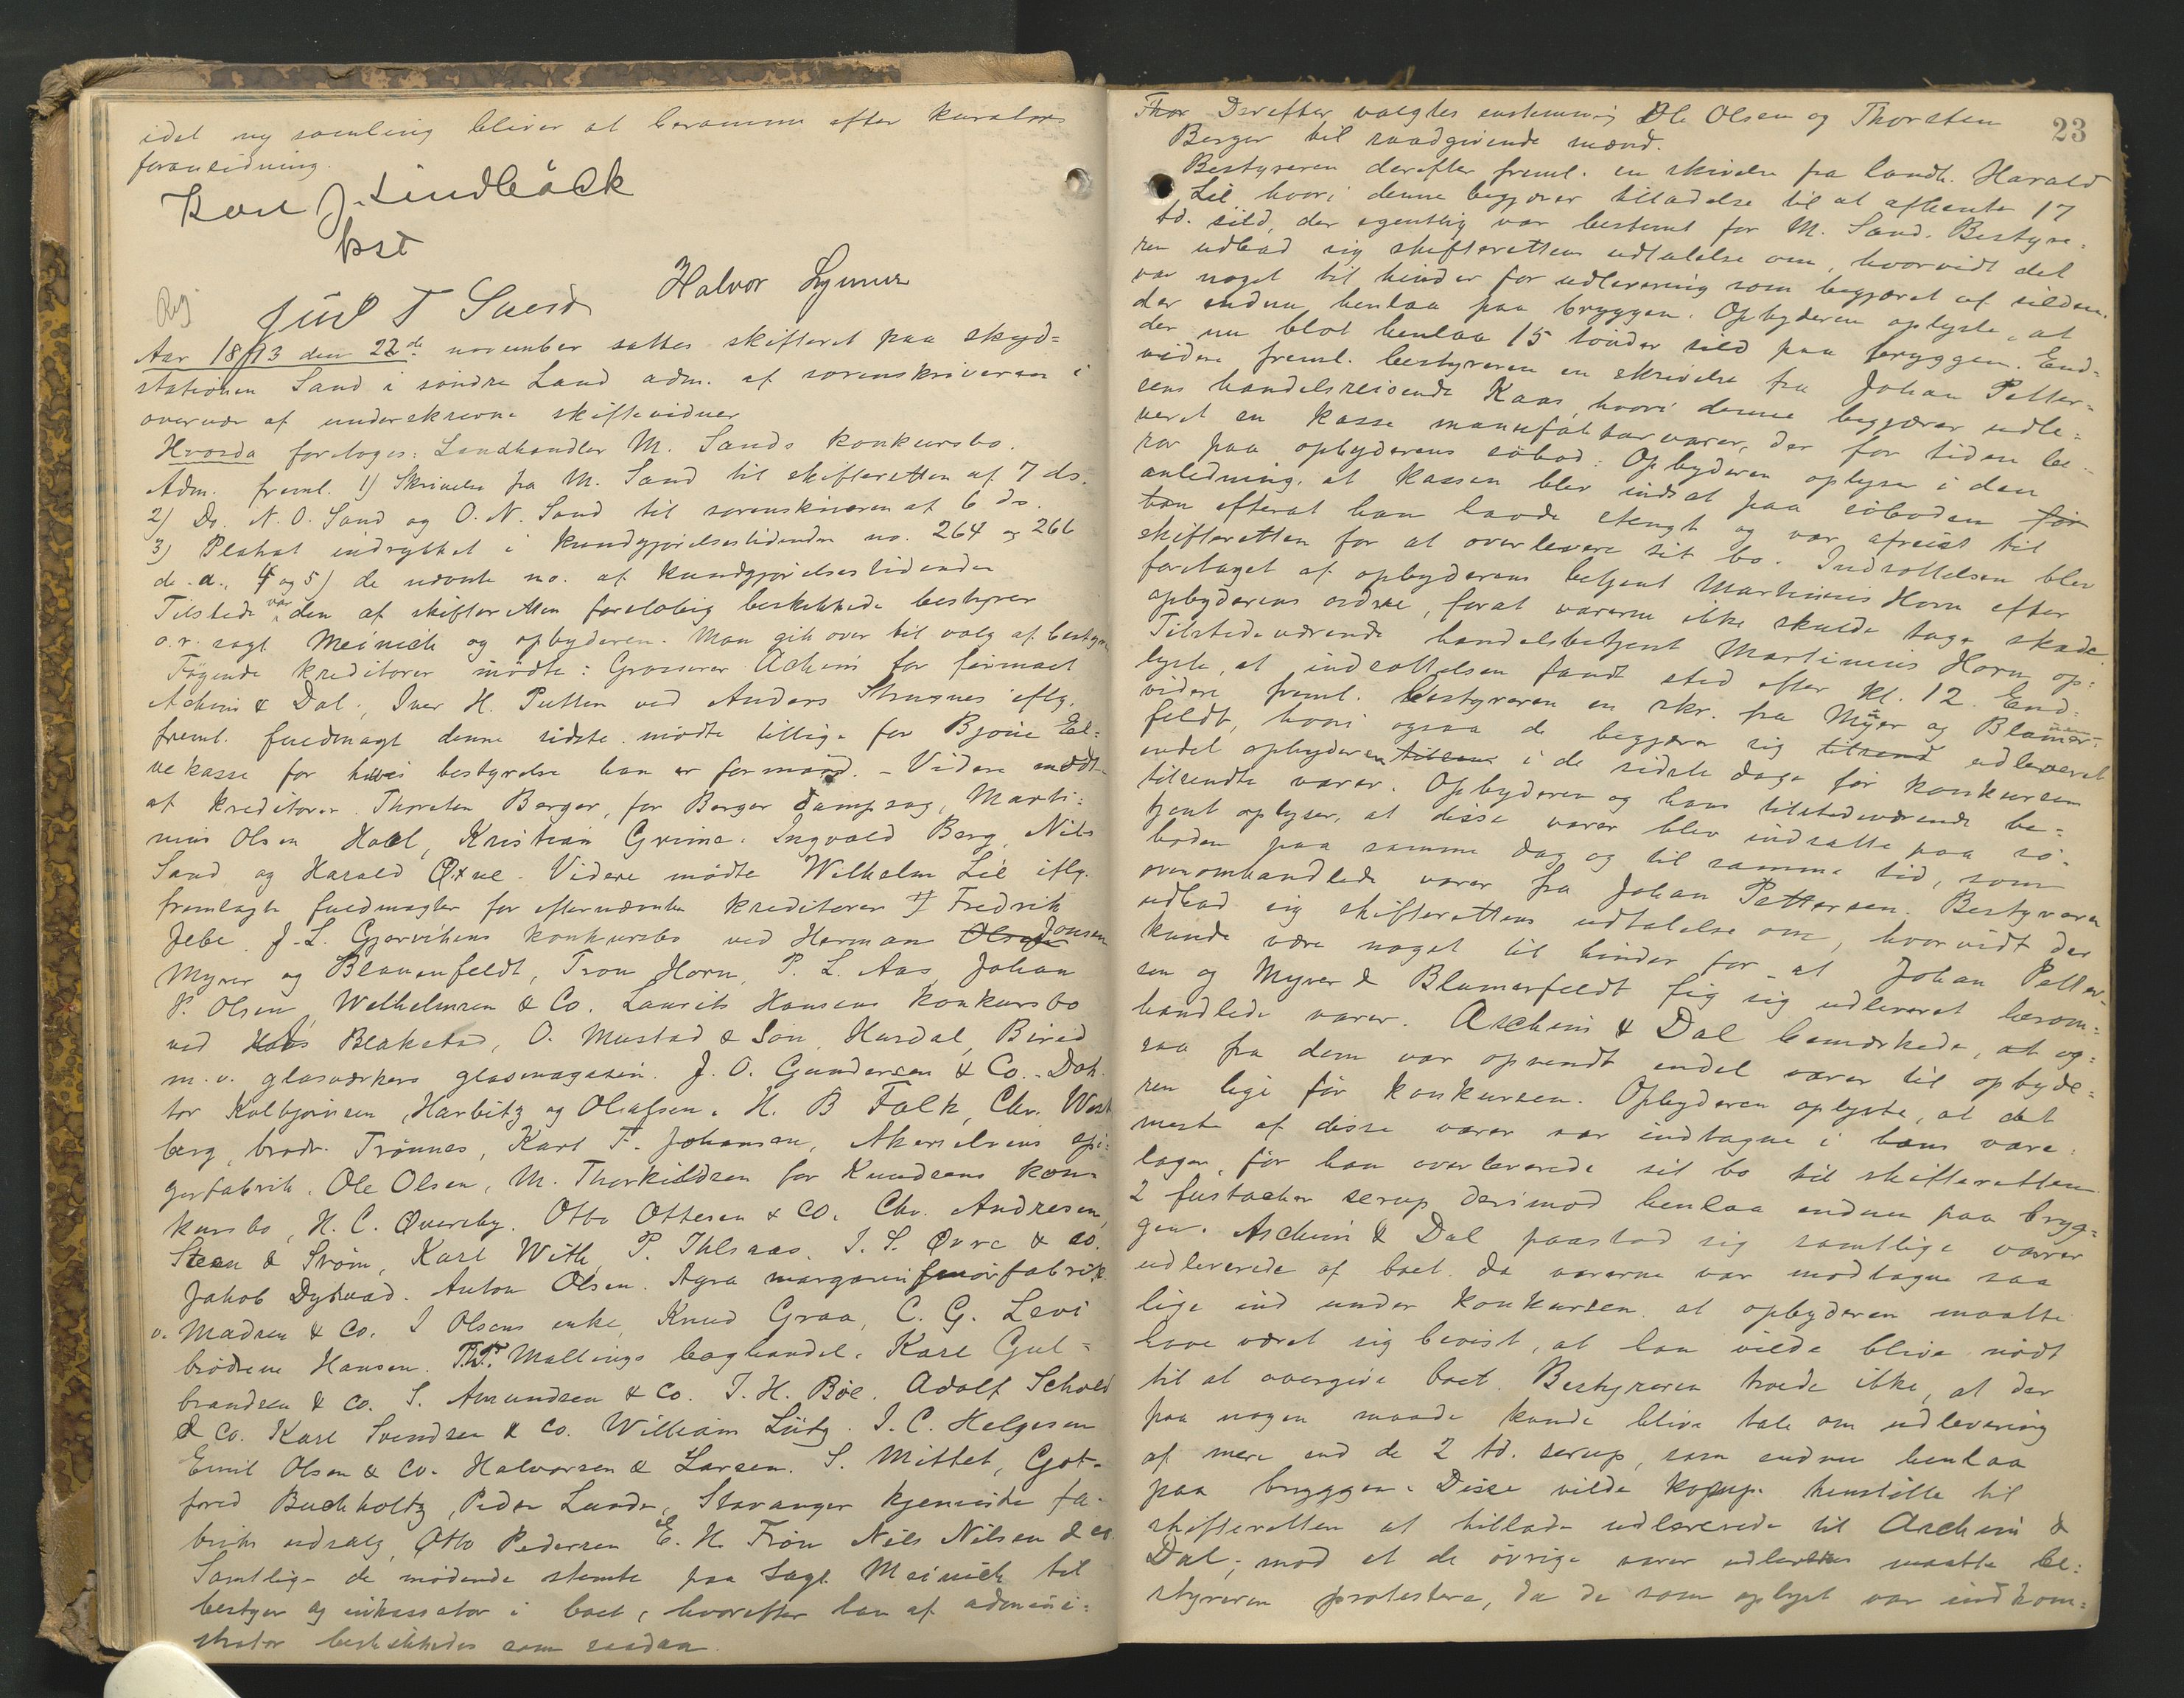 idet ny samling bliver at beramme efter kurators
foranledning.
Karl J. Lindbäck
kst
Juul T Sand Halvor Lynne
Reg
Aar 1893 den 22de november sattes skifteret paa skyd=
stationen Sand i söndre Land adm. af sorenskriveren i
overvær af underskrevne skiftevidner
Hvorda foretoges: Landhandler M. Sands konkursbo.
Adm. freml. 1) Skrivelse fra M. Sand til skifteretten af 7 ds.
2) Do. N. O. Sand og O. N. Sand til sorenskriveren af 6 ds.
3) Plakat indrykket i kundgjörelsestidende no. 264 og 266
d. a., 4 og 5) de nævnte no. af kundgjörelsestidende
Tilstede var den af skifteretten foreløbig beskikkede bestyrer
o.r. sagf. Meinich og opbyderen. Man gik over til valg af bestyrer
Fögende kreditorer mödte: Grosserer Aschim for firmaet
Aschim & Dal, Iver H. Putten ved Anders Strugnes iflg.
freml. fuldmagt denne sidste mödte tillige for Bjone El=
vekasse for hvis bestyrelse han er formand. - Videre mödte
af kreditorer Thorsten Berger, for Berger dampsag, Marti=
nius Olsen Hoel, Kristian Grime. Ingvald Berg, Nils
Sand og Harald Öxne. Videre mödte Wilhelm Lie iflg.
fremlagte fuldmagter for efternævnte kreditorer Fredrik
Jebe. J. L. Gjörvikens konkursbo ved Herman Olsen Jonsen
Myrer og Blauenfeldt, Tron Horn, P. L. Aas Johan
P. Olsen, Welhelmsen & Co. Laurits Hansens konkursbo
ved Blakstad, O. Mustad & Sön, Hurdal, Birid
m.v. glasværkers glasmagasin. J. O. Gundersen & Co. Dok
tor Kolbjörnsen, Harbitz og Olafsen. H. B Falk, Chr. West
berg, brödr. Trönnes, Karl F. Johansen, Akerselvens spi=
gerfabrik. Ole Olsen, M. Thorkildsen for Knudsens kon=
kursbo, H. C. Qvereby. Otto Ottesen & Co. Chr. Andresen,
Steen & Ström, Karl With, P. Ihlsaas. I. S. Qvre & Co.
Jakob Dybwad. Anton Olsen. Agra margarinsmörfabrik
v. Madsen & Co. I Olsens enke, Knud Graa, C. G. Levi
brödrene Hansen. P.T. Mallings boghandel. Karl Gul=
brandsen & Co. S. Amundsen & Co. T. H. Böe. Adolf Schold
& Co. Karl Svendsen & Co. William Lütz. I. C. Helgesen
Emil Olsen & Co. Halvorsen & Larsen. S. Mittet, Got=
fred Buchholtz, Peder Lunde, Stavanger kjemiske fa=
briks udsalg, Otto Pedersen & E. N. Frön Nils Nilsen & co.
Samtlige de mödende stemte paa sagf. Meinich til
bestyrer og inkassator i boet, hvorefter han af admini=
strator beskikkedes som saadan.
23
Thor Derefter valgtes enstemmig Ole Olsen og Thorsten
Berger til raadgivende mænd.
Bestyreren derefter freml. en skrivelse fra landh. Harald
Lie hvori denne begjærer tilladelse til at afhente 17
td. sild, der egentlig var bestemt for M. Sand. Bestyre=
ren udbad sig skifterettens udtalelse om, hvorvidt det
var noget til hinder for udlevering som begjæret af silden.
der endnu henlaa paa bryggen. Opbyderen oplyste, at
der nu blot henlaa 15 tönder sild paa bryggen. End=
videre freml. bestyreren en skrivelse fra Johan Petter=
sens handelsreisende Kaas, hvori denne begjærer udle=
veret en kasse manufakturvarer, der for tiden be=
ror paa opbyderens söbod. Opbyderen oplyser i den
anledning, at kassen blev indsat paa söboden för
han efterat han havde stengt og var afreist til
skifteretten for at overlevere sit bo. Indsættelsen blev
foretaget af opbyderens betjent Martinius Horn efter
opbyderens ordre, forat varerne ikke skulde tage skade.
Tilstedeværende handelsbetjent Martinius Horn op=
lyste, at indsættelsen fandt sted efter kl. 12. End=
videre freml. bestyreren en skr. fra Myer og Blamer=
feldt, hvori ogsaa de begjærer sig tilsend udleveret
endel opbyderen tilsen i de sidste dage för konkursen
tilsendte varer. Opbyderen og hans tilstedeværende be=
tjent oplyser, at disse varer blev indsatte paa sö=
boden paa samme dag og til samme tid, som
ovenomhandlede varer fra Johan Pettersen. Bestyreren
udbad sig skifterettens udtalelse om, hvorvidt der
kunde være noget til hinder for at Johan Petter=
sen og Myrer & Blamerfeldt fig sig udleveret berom=
handlede varer. Aschim & Dal bemærkede, at og=
saa fra dem var opsendt endel varer til opbyde=
ren lige för konkursen. Opbyderen oplyste, at det
meste af disse varer var indtagne i hans vare=
lager, för han overleverede sit bo til skifteretten.
2 fustacher serup derimod henlaa endnu paa bryg=
gen. Aschim & Dal paastod sig samtlige varer
udleverede af boet, da varerne var modtagne saa
lige ind under konkursen at opbyderen maatte
have været sig bevist, at han vilde blive nödt
til at overgive boet. Bestyreren troede ikke, at der
paa nogen maade kunde blive tale om udlevering
af mere end de 2 td. serup, som endnu henlaa
paa bryggen. Disse vilde henstille til
skifteretten at tillade udleverede til Aschim &
Dal; mod at de övrige varer udleveres maatte be=
styreren protestere, da de som oplyst var indkom=